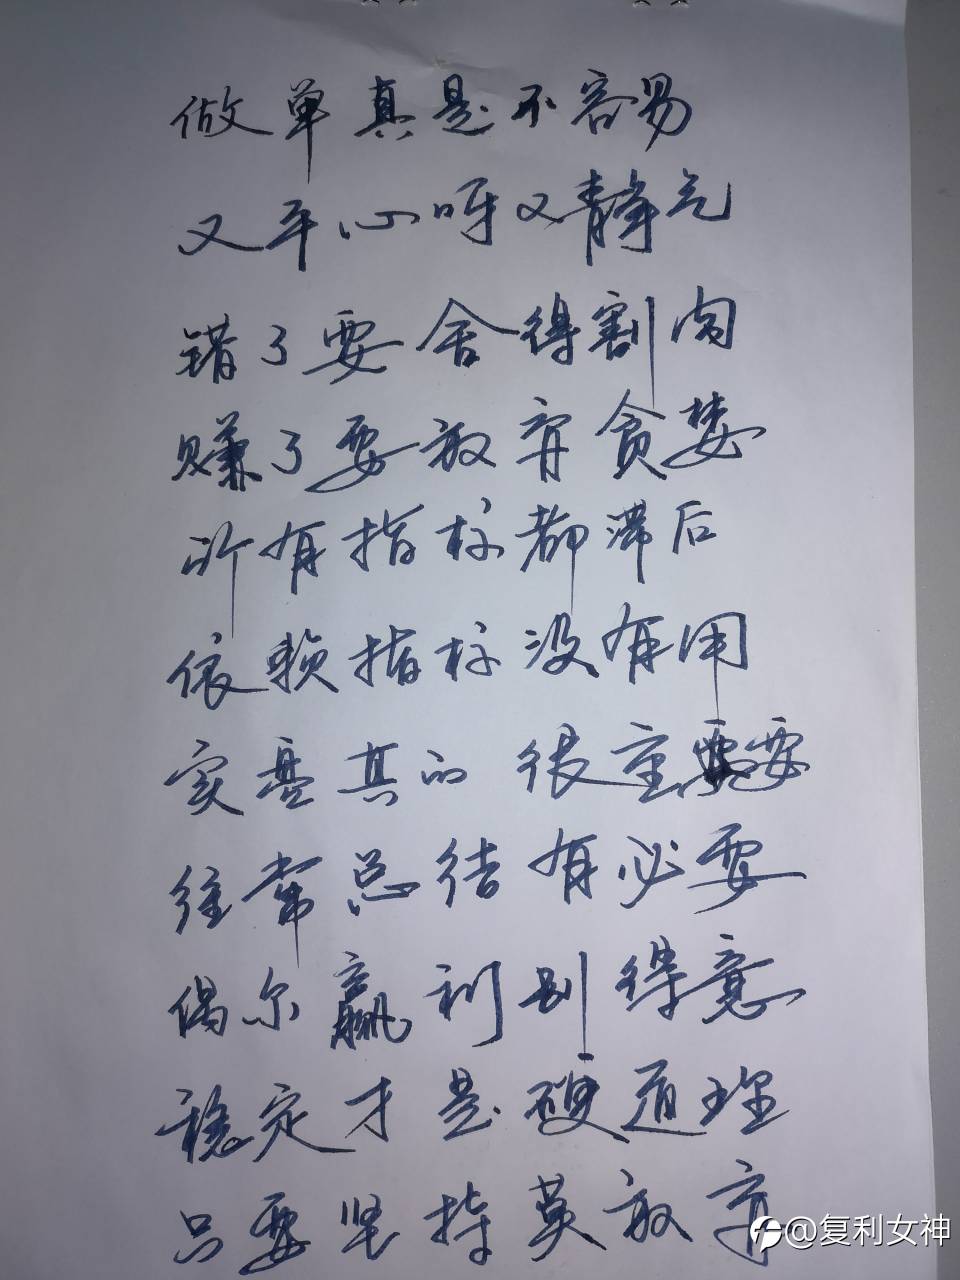 做单真是不容易
又平心呀又静气
错了要舍得割肉
赚了要放弃贪婪
所有指标都滞后
依赖指标没有用
实盘真的很重要
经常总结有必要
偶尔赢利别得意
稳定才是硬道理
只要坚持莫放弃
@复利女神